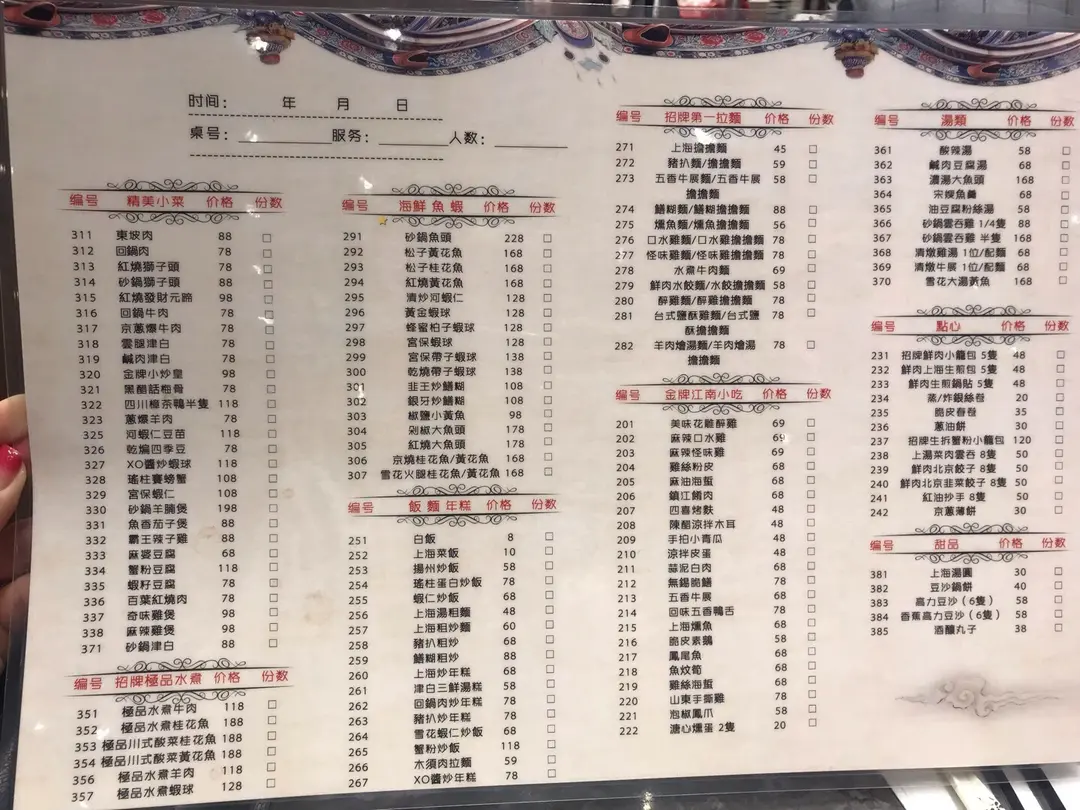 时间: 年 月 日
桌号: 服务: 人数:
编号 精美小菜 价格 份数
311 東坡肉 88
312 回鍋肉 78
313 紅燒獅子頭 78
314 砂鍋獅子頭 88
315 紅燒發財元蹄 98
316 回鍋牛肉 78
317 京蔥爆牛肉 78
318 雲腿津白 78
319 鹹肉津白 78
320 金牌小炒皇 98
321 黑醋話梅骨 78
322 四川樟茶鴨半隻 118
323 蔥爆羊肉 78
325 河蝦仁豆苗 118
326 乾煸四季豆 78
327 XO醬炒蝦球 118
328 瑤柱賽螃蟹 108
329 宮保蝦仁 108
330 砂鍋羊腩煲 198
331 魚香茄子煲 88
332 霸王辣子雞 88
333 麻婆豆腐 68
334 蟹粉豆腐 118
335 蝦籽豆腐 78
336 百葉紅燒肉 78
337 奇味雞煲 98
338 麻辣雞煲 98
371 砂鍋津白 88
编号 招牌極品水煮 价格 份数
351 極品水煮牛肉 118
352 極品水煮桂花魚 188
353 極品川式酸菜桂花魚 188
354 極品川式酸菜黃花魚 188
356 極品水煮羊肉 118
357 極品水煮蝦球 128
编号 海鮮魚蝦 价格 份数
291 砂鍋魚頭 228
292 松子黃花魚 168
293 松子桂花魚 168
294 紅燒黃花魚 168
295 清炒河蝦仁 128
296 黃金蝦球 128
297 蜂蜜柏子蝦球 128
298 宮保蝦球 128
299 宮保帶子蝦球 138
300 乾燒帶子蝦球 138
301 韭王炒鱔糊 108
302 銀牙炒鱔糊 108
303 椒鹽小黃魚 98
304 剁椒大魚頭 178
305 紅燒大魚頭 178
306 京燒桂花魚/黃花魚 168
307 雪花火腿桂花魚/黃花魚 168
编号 飯麵年糕 价格 份数
251 白飯 8
252 上海菜飯 10
253 揚州炒飯 58
254 瑤柱蛋白炒飯 78
255 蝦仁炒飯 68
256 上海湯粗麵 48
257 上海粗炒麵 60
258 豬扒粗炒 78
259 鱔糊粗炒 88
260 上海炒年糕 68
261 津白三鮮湯糕 58
262 回鍋肉炒年糕 78
263 豬扒炒年糕 78
264 雪花蝦仁炒飯 68
265 蟹粉炒飯 118
266 木須肉拉麵 59
267 XO醬炒年糕 78
编号 招牌第一拉麵 价格 份数
271 上海擔擔麵 45
272 豬扒麵/擔擔麵 59
273 五香牛展麵/五香牛展 58
擔擔麵
274 鱔糊麵/鱔糊擔擔麵 88
275 燻魚麵/燻魚擔擔麵 56
276 口水雞麵/口水雞擔擔麵 78
277 怪味雞麵/怪味雞擔擔麵 78
278 水煮牛肉麵 69
279 鮮肉水餃麵/水餃擔擔麵 58
280 醉雞麵/醉雞擔擔麵 78
281 台式鹽酥雞麵/台式鹽 78
酥擔擔麵
282 羊肉燴湯麵/羊肉燴湯 78
擔擔麵
编号 金牌江南小吃 价格 份数
201 美味花雕醉雞 69
202 麻辣口水雞 69
203 麻辣怪味雞 69
204 雞絲粉皮 68
205 麻油海蜇 68
206 鎮江餚肉 68
207 四喜烤麩 48
208 陳醋涼拌木耳 48
209 手拍小青瓜 48
210 涼拌皮蛋 48
211 蒜泥白肉 68
212 無錫脆鱔 78
213 五香牛𦟌 68
214 回味五香鴨舌 78
215 上海燻魚 68
216 脆皮素鵝 58
217 鳳尾魚 68
218 魚炆筍 68
219 雞絲海蜇 68
220 山東手撕雞 78
221 泡椒鳳爪 58
222 溏心燻蛋 2隻 20
编号 湯類 价格 份数
361 酸辣湯 58
362 鹹肉豆腐湯 68
363 濃湯大魚頭 168
364 宋嫂魚羹 68
365 油豆腐粉絲湯 58
366 砂鍋雲吞雞 1/4隻 88
367 砂鍋雲吞雞 半隻 168
368 清燉雞湯 1位/配麵 68
369 清燉牛展 1位/配麵 68
370 雪花大湯黃魚 168
编号 點心 价格 份数
231 招牌鮮肉小籠包 5隻 48
232 鮮肉上海生煎包 5隻 48
233 鮮肉生煎鍋貼 5隻 48
234 蒸/炸銀絲卷 20
235 脆皮春卷 35
236 蔥油餅 30
237 招牌生拆蟹粉小籠包 120
238 上湯菜肉雲吞 8隻 50
239 鮮肉北京餃子 8隻 50
240 鮮肉北京韭菜餃子 8隻 50
241 紅油抄手 8隻 50
242 京蔥薄餅 30
编号 甜品 价格 份数
381 上海湯圓 30
382 豆沙鍋餅 40
383 高力豆沙（6隻） 58
384 香蕉高力豆沙（6隻） 58
385 酒釀丸子 38